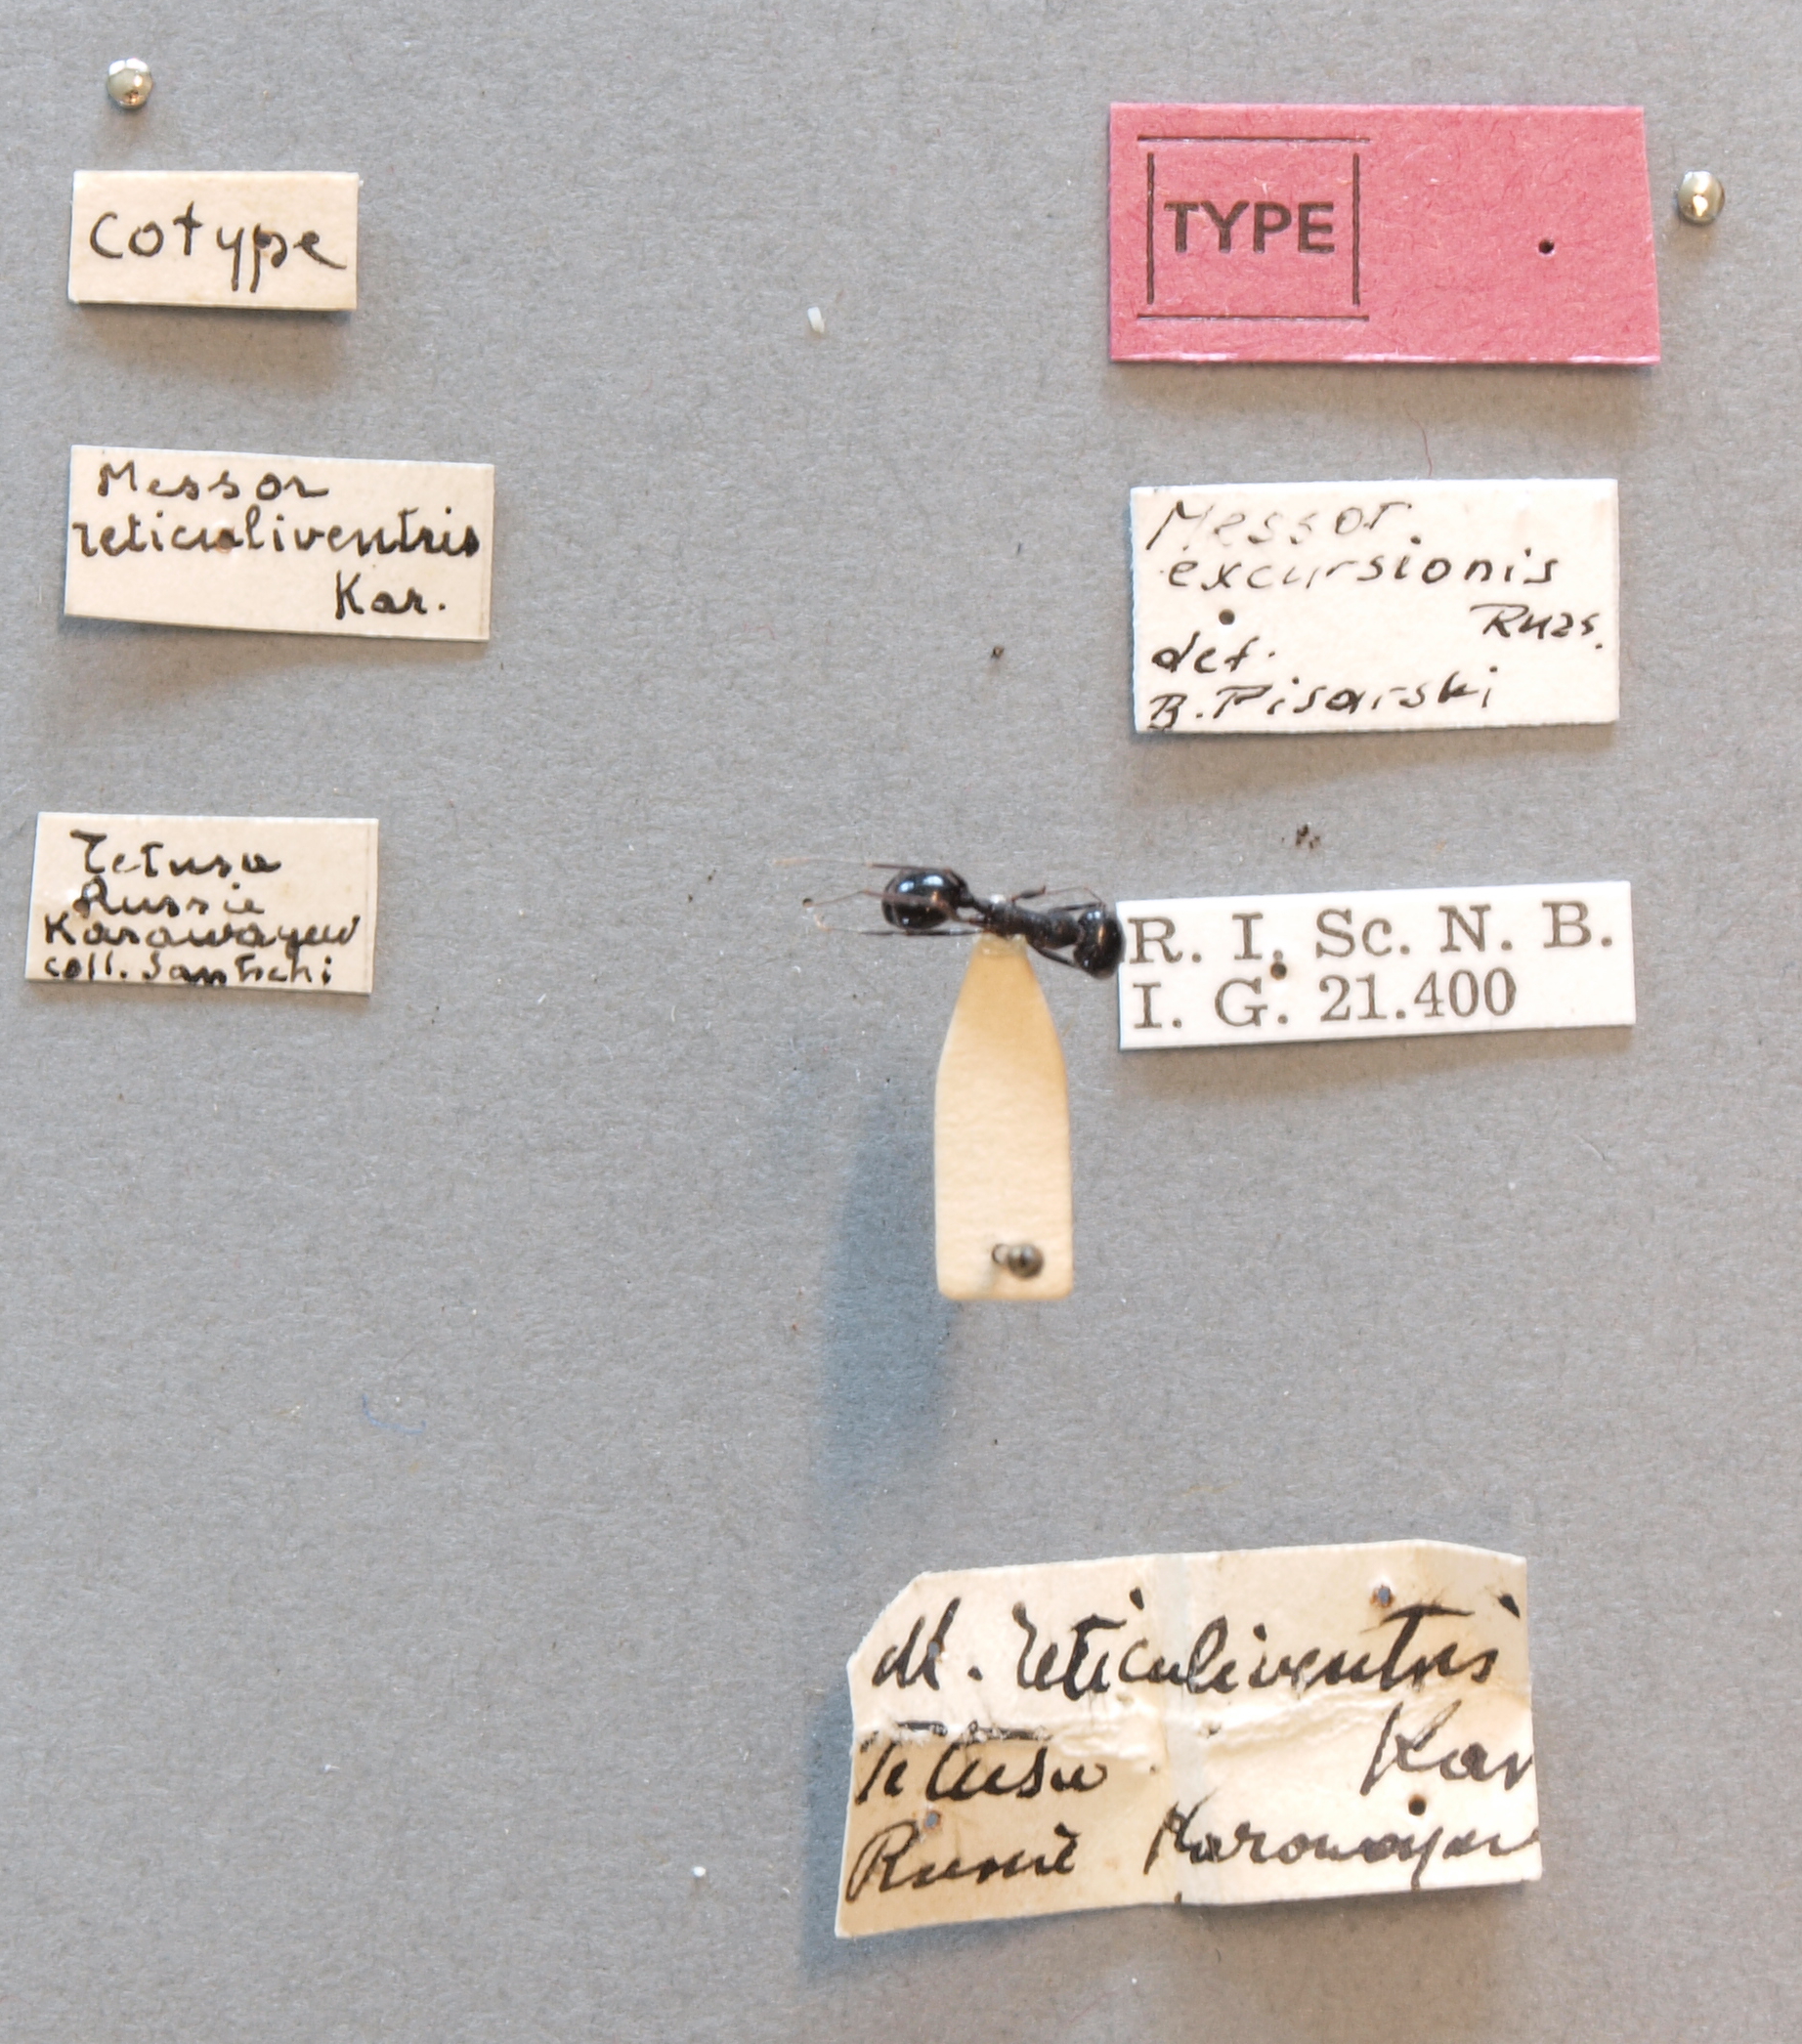 cotype
Messor
reticuliventris
Kar.
Tetusu
Russie
Karawayew
coll. Santschi
TYPE
Messor
excursionis
Ruzs.
det.
B. Pisarski
R. I. Sc. N. B.
I. G. 21.400
M. reticuliventris
Kar
Tetusu
Russie Karawayew